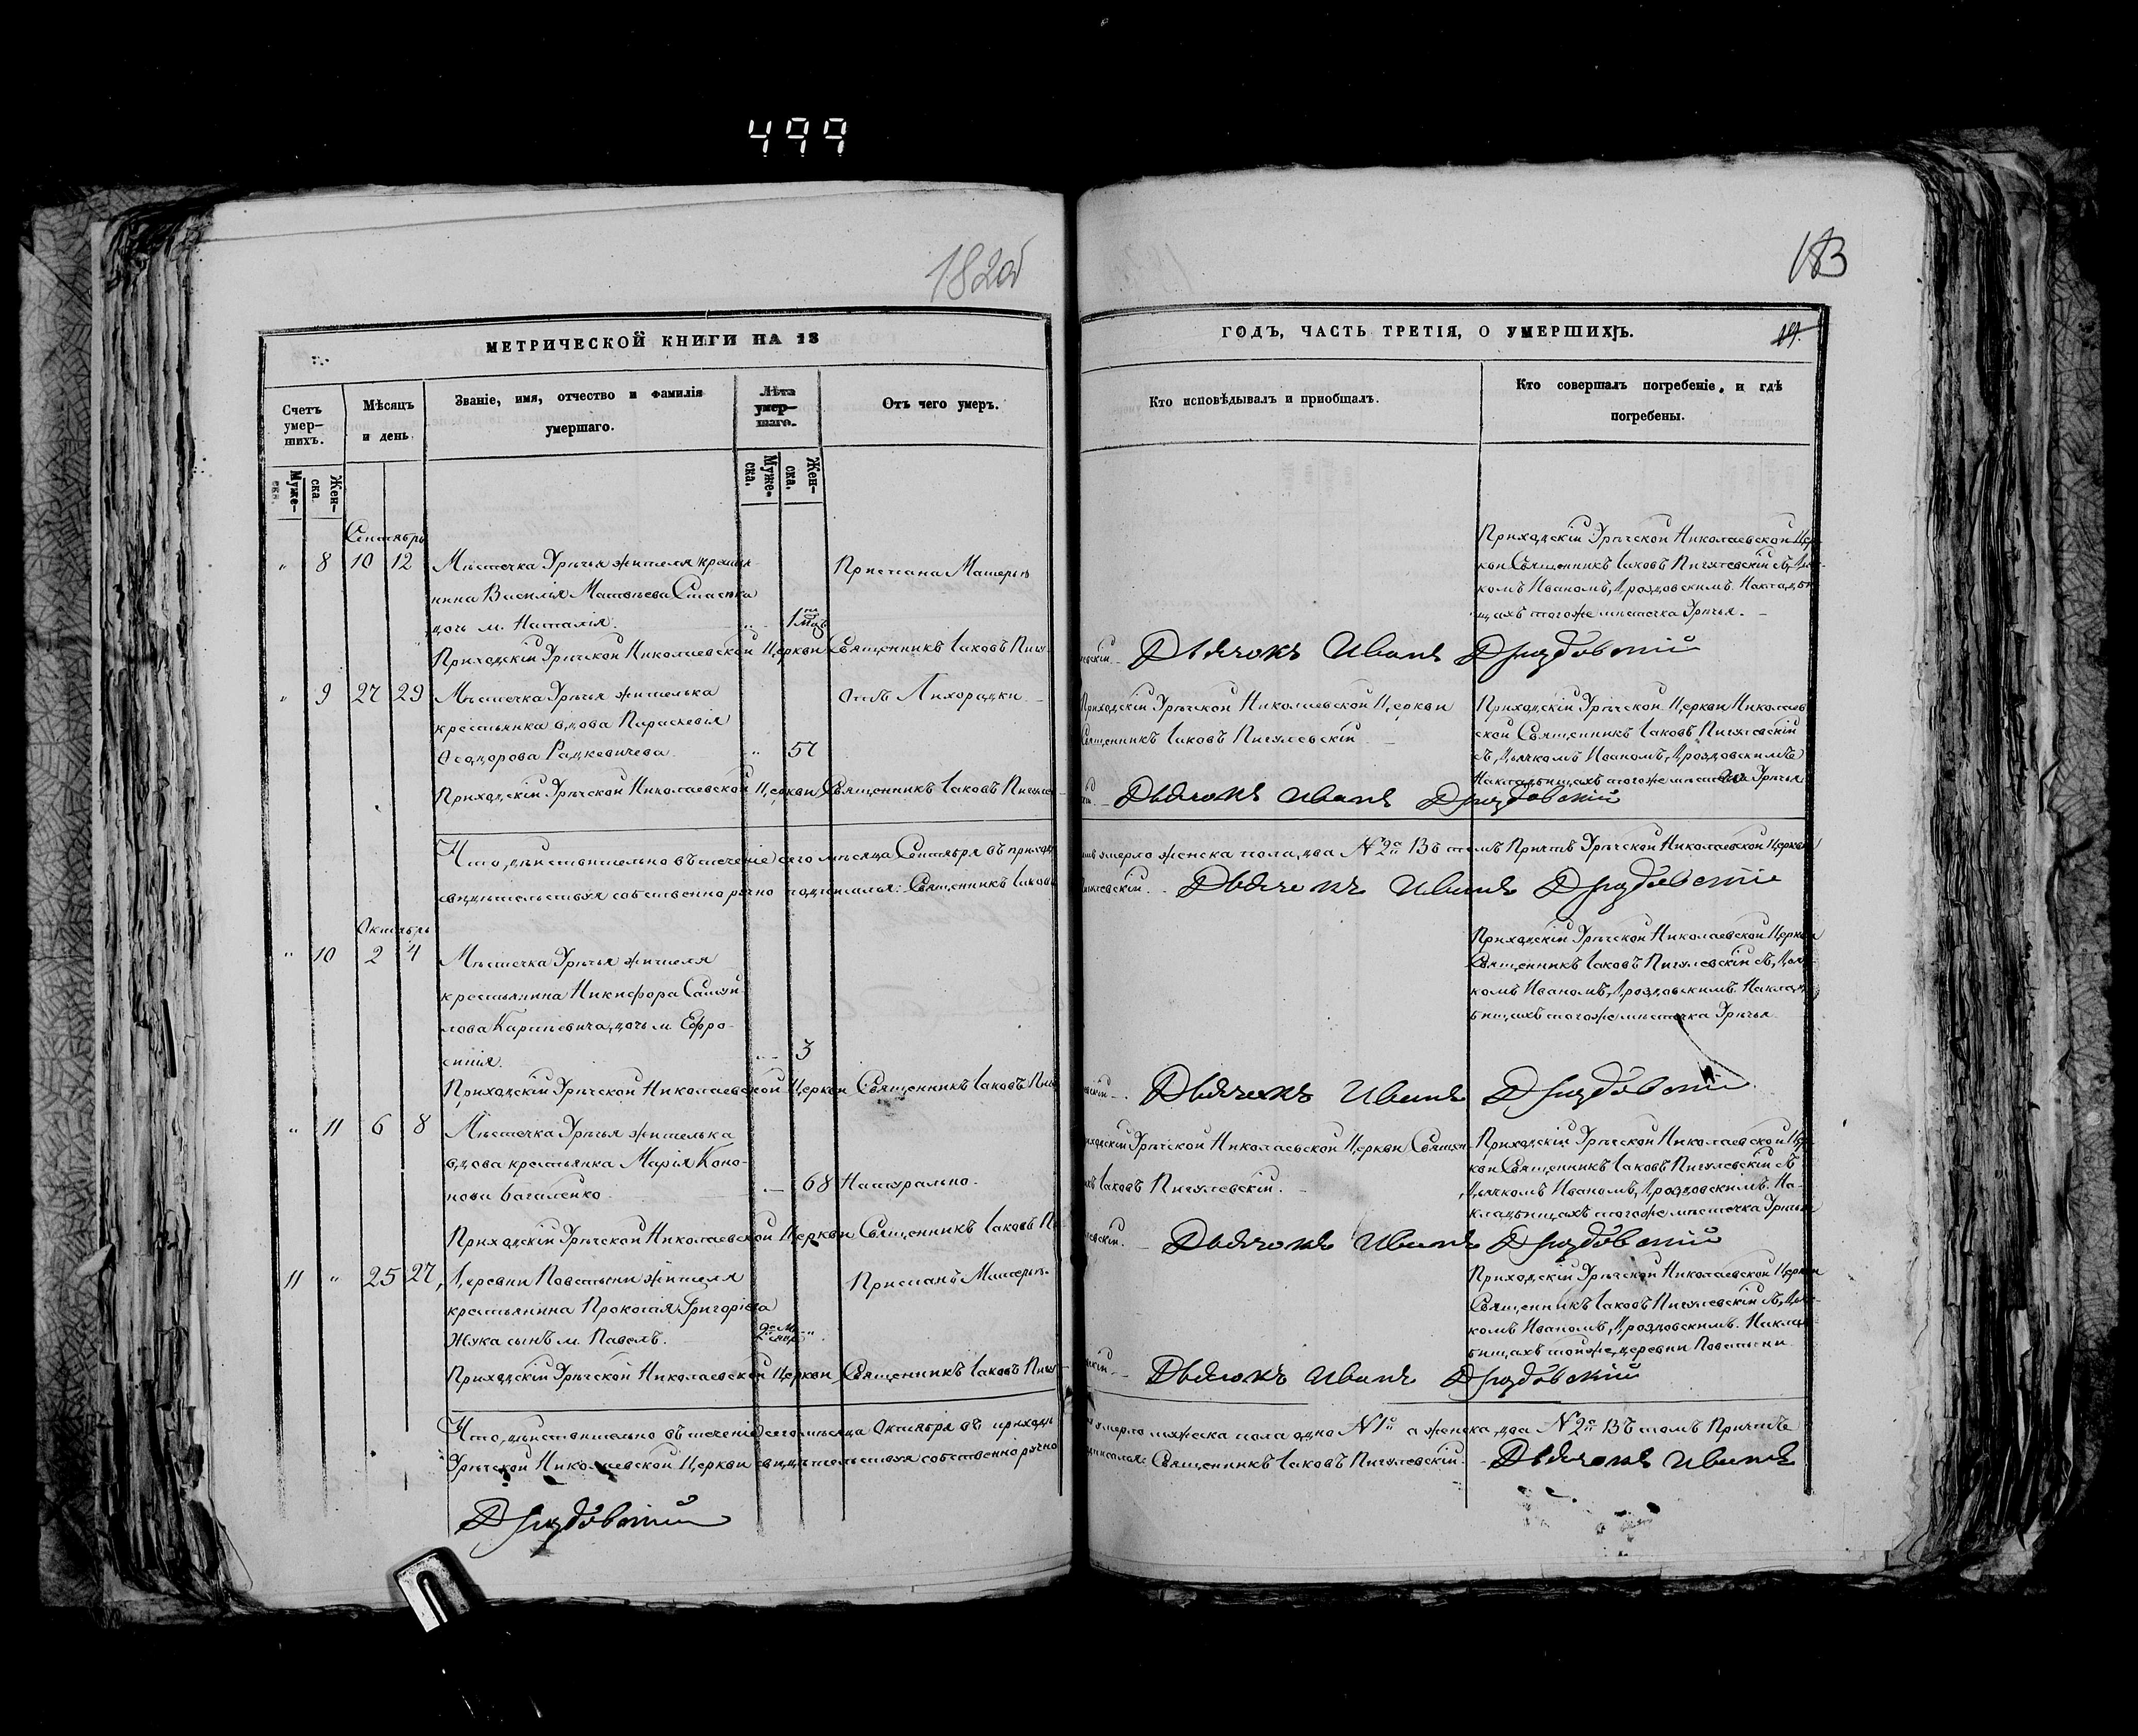 499
182об
183
МЕТРИЧЕСКОЙ КНИГИ НА 18
ГОДЪ, ЧАСТЬ ТРЕТІЯ, О УМЕРШИХЪ.
Счетъ умер-
шихъ.
Муже-
ска.
Жен-
ска.
Мѣсяцъ
и день
Званіе, имя, отчество и фамилія
умершаго.
Лѣта
умер-
шаго.
Муже-
ска.
Жен-
ска.
Отъ чего умеръ.
Кто исповѣдывалъ и приобщалъ.
Кто совершалъ погребеніе, и гдѣ
погребены.
Сентябрь
„ 8 10 12
Мѣстечка Урѣчья жителя крестья-
нина Василія Матвѣева
дочь м. Наталія.
Приспана Матерью
Приходскій Урѣчской Николаевской Цер-
кви Священникъ Іаковъ Пигулевскій съ Дьяч-
комъ Иваномъ Дроздовскимъ. На кладби-
щахъ тогоже мѣстечка Урѣчья.
Приходскій Урѣчской Николаевской Церкви Священникъ Іаковъ Пигу-
левскій. Дьячокъ Иванъ Дроздовскій
„ 9 27 29
Мѣстечка Урѣчья жителька
крестьянка вдова Параскевія
Ѳеодорова Радкевичева
„ 57
Отъ Лихорадки
Приходскій Урѣчской Николаевской Церкви
Священникъ Іаковъ Пигулевскій
Приходскій Урѣчской Церкви Николаев
ской Священникъ Іаковъ Пигулевскій
съ Дьячкомъ Иваномъ Дроздовскимъ
На кладбищахъ тогоже мѣстечка Урѣчья
Приходскій Урѣчской Николаевской Церкви Священникъ Іаковъ Пигулев-
скій. Дьячокъ Иванъ Дроздовскій
Что дѣйствительно въ теченіе сего мѣсяца Сентября въ приходѣ
семъ умерло женска пола два №2й Въ томъ Причтъ Урѣчской Николаевской Церкви
свидѣтельствуя собственноручно подписалъ: Священникъ Іаковъ
Пигулевскій. Дьячокъ Иванъ Дроздовскій
Октябрь
„ 10 2 4
Мѣстечка Урѣчья жителя
крестьянина Никифора Самуй-
лова Карпевича дочь м. Ефро-
синія.
3
Приходскій Урѣчской Николаевской Церкви
Священникъ Іаковъ Пигулевскій съ Дьяч-
комъ Иваномъ Дроздовскимъ. На клад-
бищахъ тогоже мѣстечка Урѣчья
Приходскій Урѣчской Николаевской Церкви Священникъ Іаковъ Пигу-
левскій. Дьячокъ Иванъ Дроздовскій
„ 11 6 8
Мѣстечка Урѣчья жителька
вдова крестьянка Марія Коно-
нова Багаленко
68
Натурально.
Приходскій Урѣчской Николаевской Церкви Священ-
никъ Іаковъ Пигулевскій.
Приходскій Урѣчской Николаевской Цер-
кви Священникъ Іаковъ Пигулевскій съ
Дьячкомъ Иваномъ Дроздовскимъ. На-
кладбищахъ тогоже мѣстечка Урѣчья
Приходскій Урѣчской Николаевской Церкви Священникъ Іаковъ Пигу-
левскій. Дьячокъ Иванъ Дроздовскій
11 „ 25 27
Деревни Повстыни жителя
крестьянина Прокопія Григорьева
Жука сынъ м. Павелъ.
Приспанъ Матерью.
Приходскій Урѣчской Николаевской Церкви
Священникъ Іаковъ Пигулевскій съ Дьяч-
комъ Иваномъ Дроздовскимъ. На клад-
бищахъ тойже деревни Повстыни.
Приходскій Урѣчской Николаевской Церкви Священникъ Іаковъ Пигу-
левскій. Дьячокъ Иванъ Дроздовскій
Что дѣйствительно въ теченіе сего мѣсяца Октября въ приходѣ
семъ умерло мужеска пола одно №1й а женска два №2й Въ томъ Причтъ
Урѣчской Николаевской Церкви свидѣтельствуя собственноручно
подписалъ: Священникъ Іаковъ Пигулевскій. Дьячокъ Иванъ
Дроздовскій